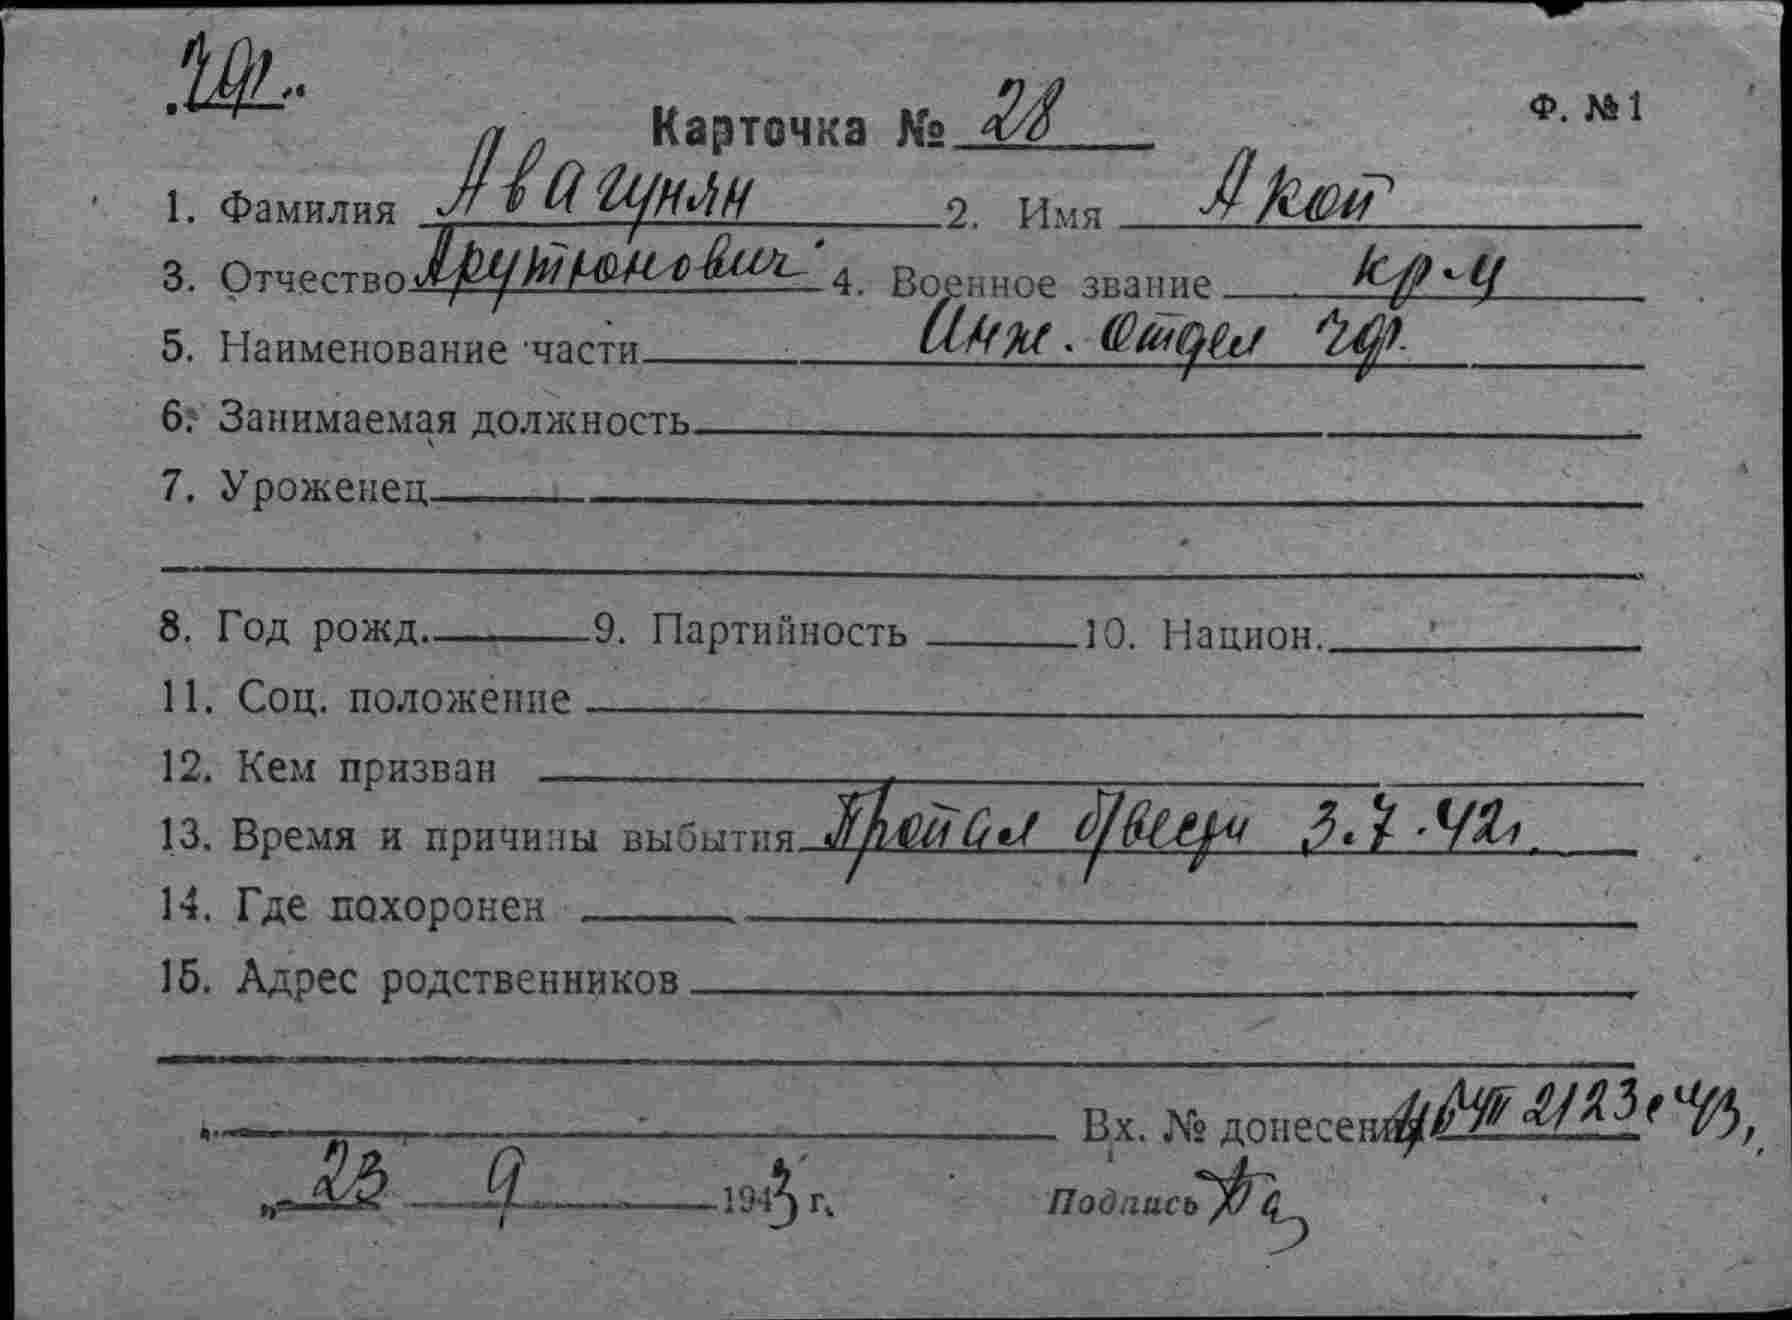 Ф. №1
Карточка № 28
1. Фамилия Авагунян 2. Имя Акоп
3. Отчество Арутюнович 4. Военное звание кр-ц
5. Наименование части Инж. отдел
6. Занимаемая должность
7. Уроженец
8. Год рожд. 9. Партийность 10. Национ.
11. Соц. положение
12. Кем призван
13. Время и причины выбытия Пропал 3.7.42г.
14. Где похоронен
15. Адрес родственников
Вх. № донесен 2123с 43,
„23 9 1943 г.
Подпись